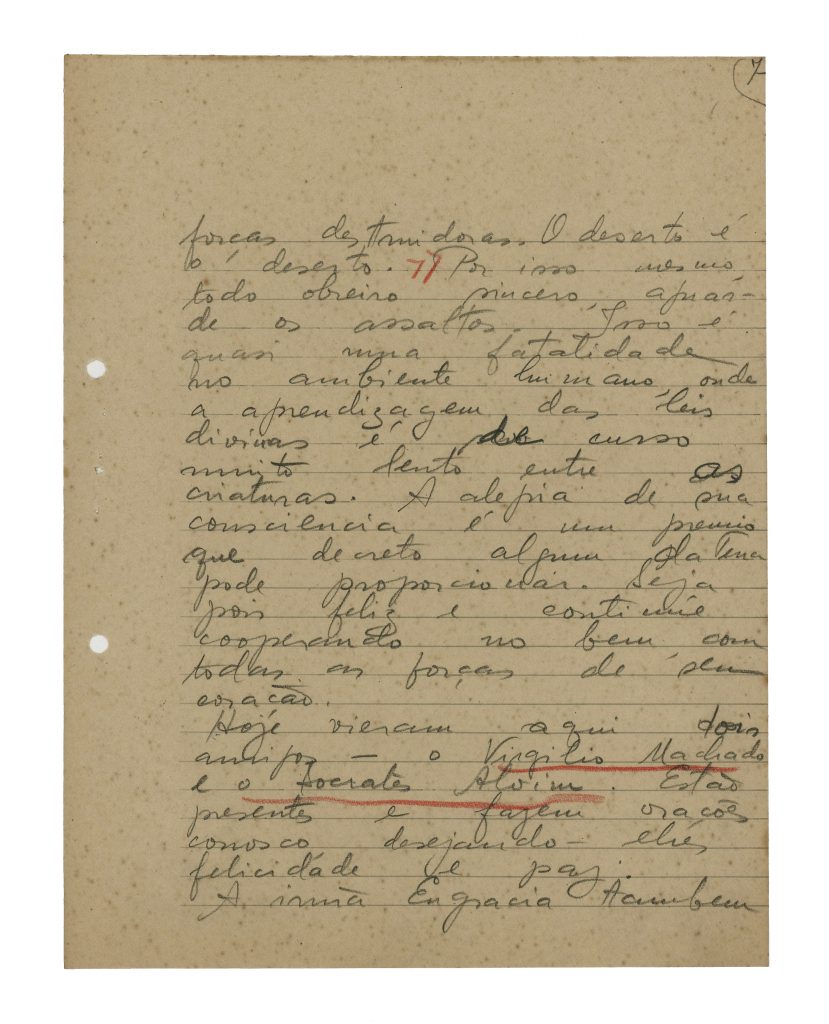 7
forças destruidoras. O deserto é
o deserto. Por isso mesmo,
todo obreiro sincero, aguár-
de os assaltos. Isso é
quasi uma fatalidade
no ambiente humano, onde
a aprendizagem das leis
divinas é de curso
muito lento entre as
criaturas. A alegria de sua
consciencia é um premio
que decreto algum da Terra
pode proporcionar. Seja
pois feliz e continúe
cooperando no bem, com
todas as forças de seu
coração.
Hoje vieram aqui dois
amigos — o Virgilio Machado
e o Socrates Alvim. Estão
presentes e fazem orações
conosco, desejando-lhes
felicidade e paz.
A irmã Engracia tambem